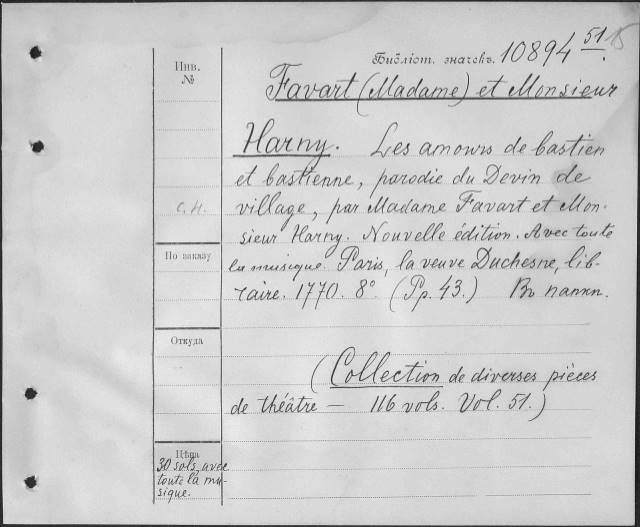 Библіот. значекъ. 10894 51.
Инв.
№
Favart (Madame) et Monsieur
Harny. Les amours de bastien
et bastienne, parodie du Devin de
village, par Madame Favart et Mon-
sieur Harny. Nouvelle édition. Avec toute
la musique. Paris, la veuve Duchesne, lib-
raire. 1770. 8° (Pp. 43.) Въ папкѣ.
С. Н.
По заказу
Откуда
(Collection de diverses pièces
de théâtre — 116 vols. Vol. 51.)
Цѣна
30 sols, avec
toute la mu-
sique.